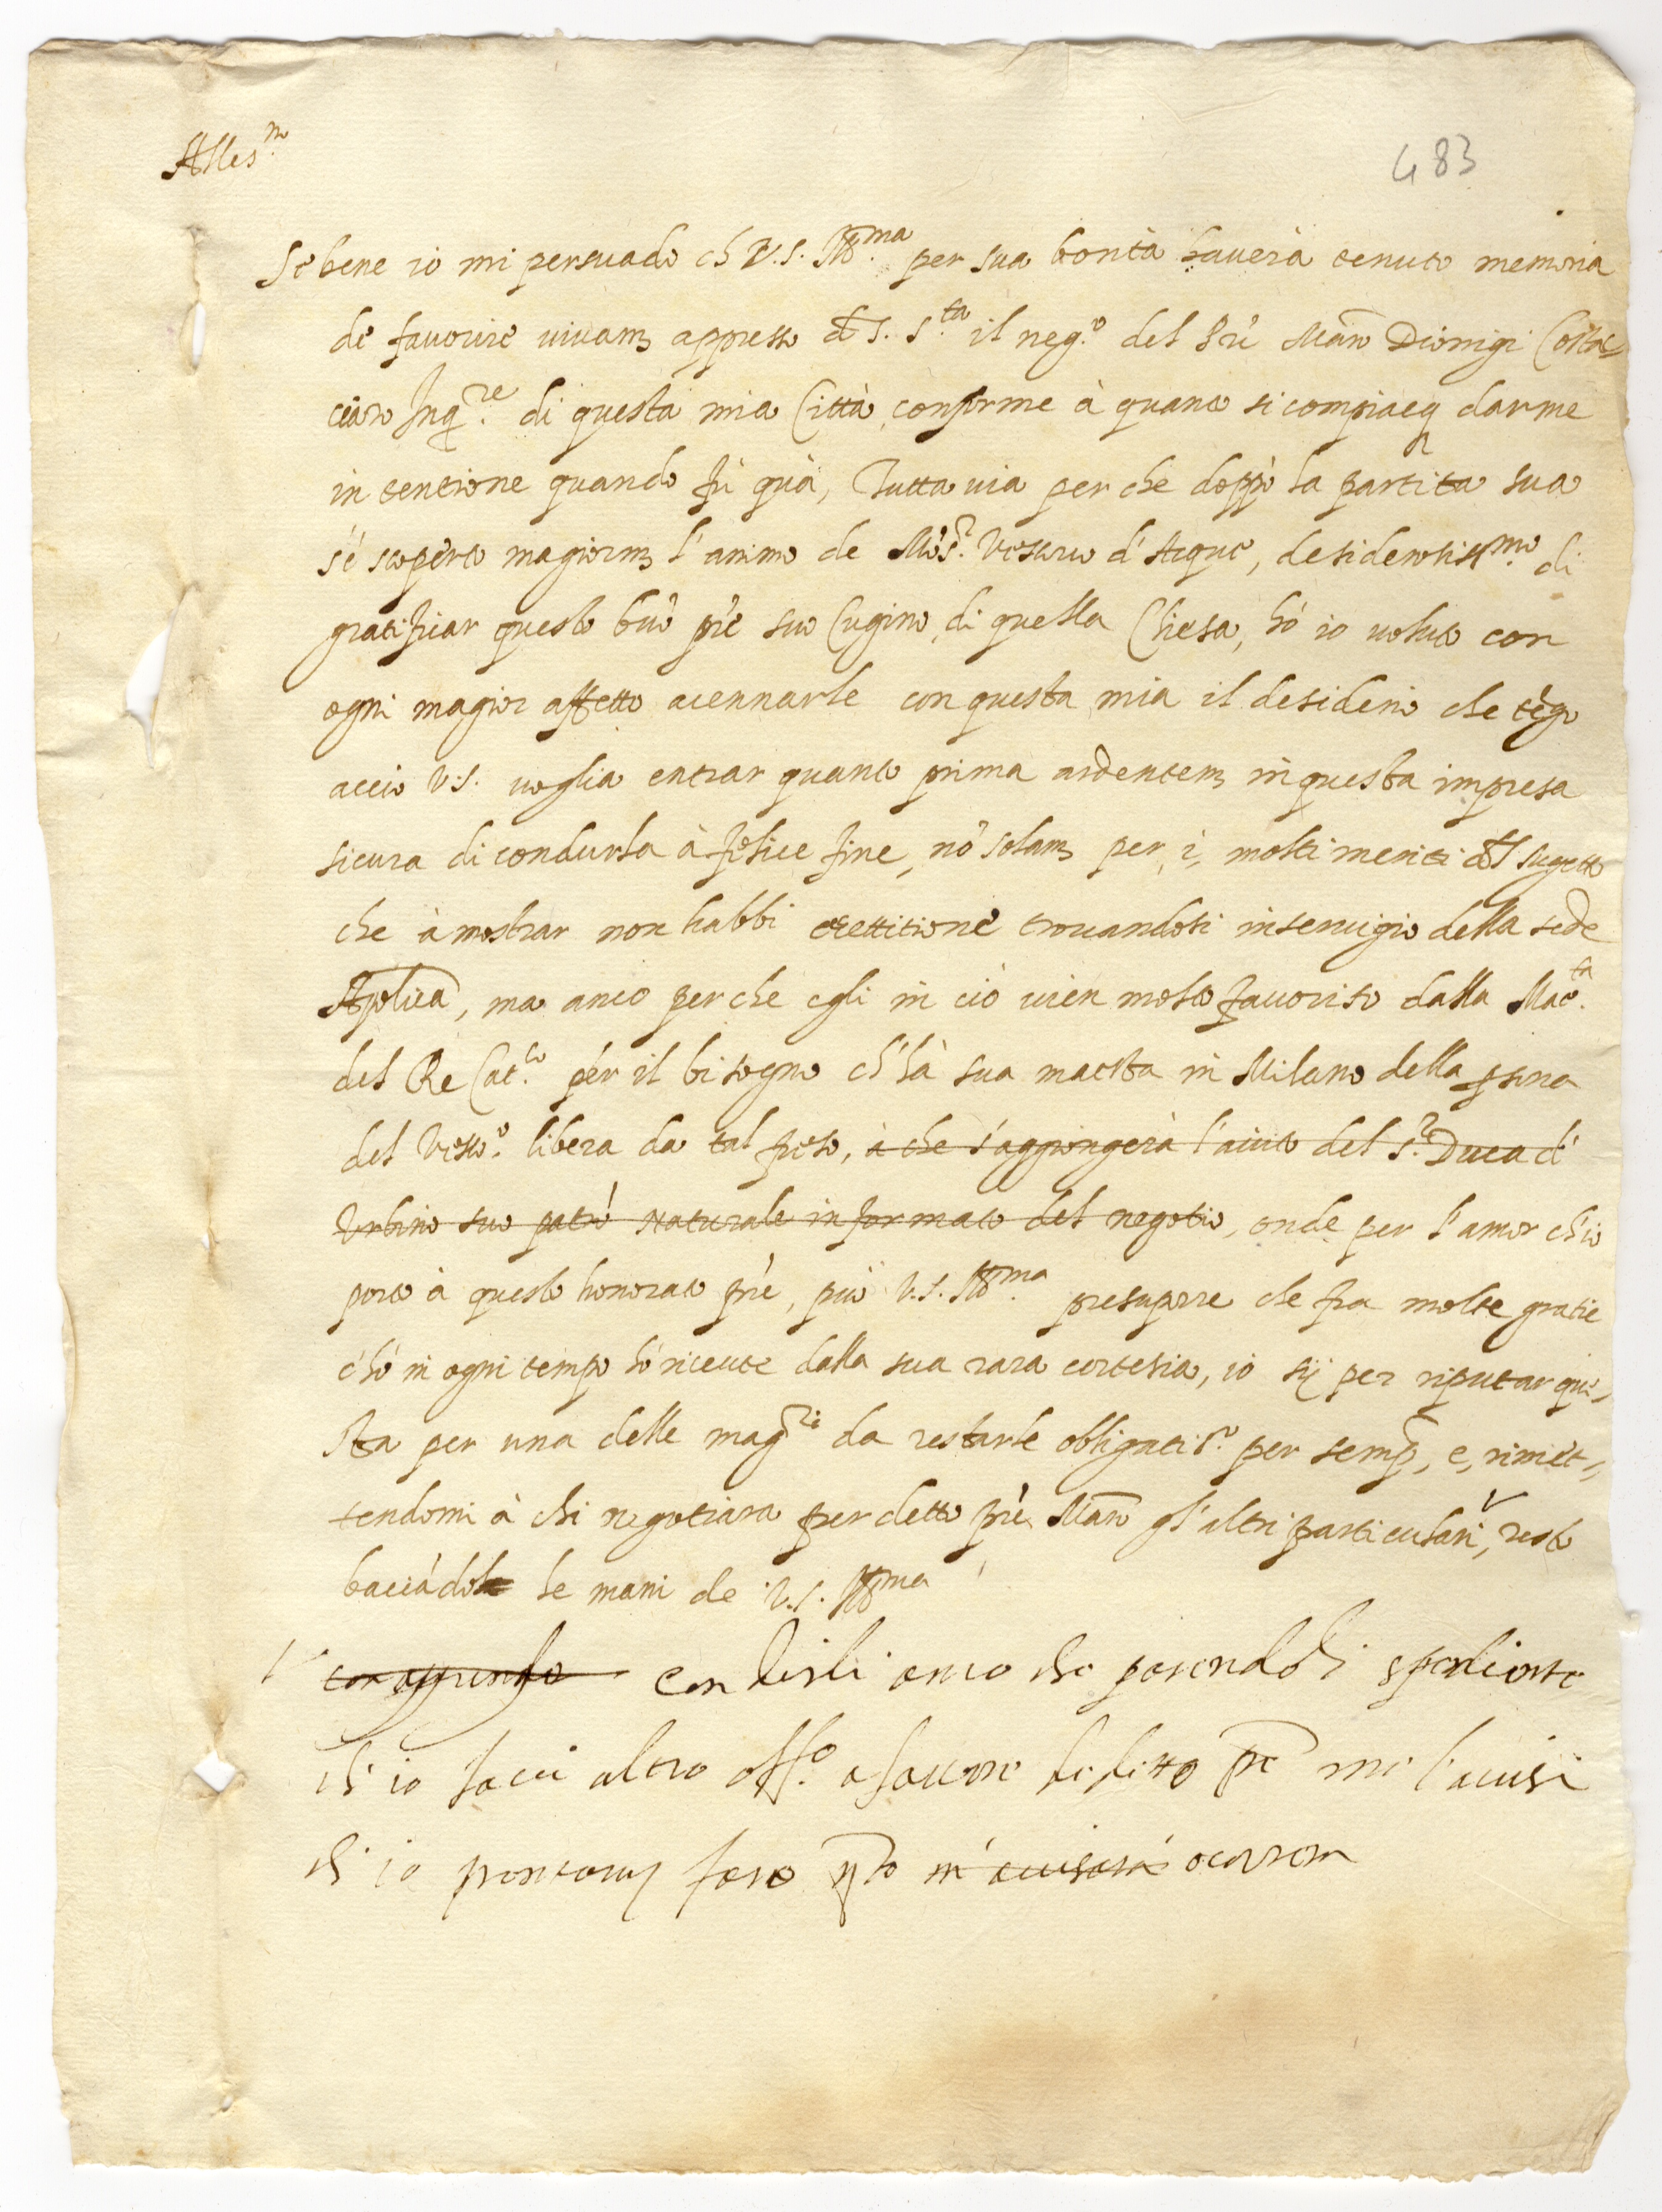 483
Se bene io mi persuado ch V.S. Ill.ma per sua bontà haverà tenuto memoria
de favorire vivam. appresso d S. S.ta il neg.o del Pre Mro Dionigi Costac=
ciaro Inq.re di questa mia Città, conforme à quanto si compiacq darme
in tentione quando fù quà, Tuttavia per che doppò la partita sua
s'é scoperto magiorm. l'animo de Mons.r Vescovo d'Acque, desiderosiss.mo di
gratificar questo buo pre suo Cugino, di quella Chiesa, hò io voluto con
ogni magior affetto acennarle con questa mia il desiderio che tēgo
acciò V.S. voglia entrar quanto prima ardentem. in questa impresa
sicura di condurla à felice fine, nō solam. per, i, molti meriti del sugetto
che à mostrar non habbi trovandosi in servigio della sede
Aplica, ma anco per che egli in ciò vien molto favorito dalla Mae.tà
del Re Cat.co pér il bisogno ch'hà sua maestà in Milano della psona
del Vesco.o libera da tal peso, à che s'aggiongerà l'aiuto del S.r Duca d'
Urbino suo patrō naturale informato del negotio, onde per l'amor ch'io
porto à questo honorato pre, può V.S. Ill.ma presuporre che fra molte gratie
c'hó in ogni tempo hó ricevute dalla sua rara cortesia, io sij per riputar que=
sta per una delle mag.ri da restarle obligatis.o per semp, e, rimet=
tendomi à chi negotiara per detto pre Mro gl'altri particulari, resto
baciādo le mani de V.S. Ill.ma
con dirli anco che parendoli spediente
ch'io facci altro off.o a favore di ditto pre mi l'avisi
ch'io prontam. farò qto m'avisarà occorrerà